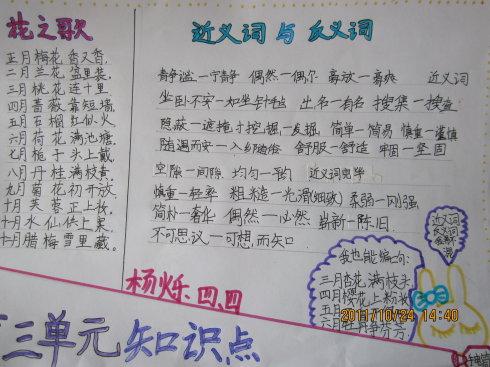 花之歌
正月梅花香又香,
二月兰花盆里装,
三月桃花连十里,
四月蔷薇靠短墙,
五月石榴红似火,
六月荷花满池塘,
七月栀子头上戴,
八月丹桂满枝黄,
九月菊花初开放,
十月芙蓉正上妆,
十月水仙供上案,
十月腊梅雪里藏。
近义词与反义词
静谧—宁静 偶然—偶尔 近义词
坐卧不安—如坐针毡 出名—有名 搜集—搜查
隐蔽—遮掩 挖掘—发掘 简单—简易 慎重—谨慎
随遇而安—入乡随俗 舒服—舒适 牢固—坚固
空隙—间隙 均匀—匀 近义词完毕
慎重—轻率 粗糙—光滑(细致) 柔弱—刚强
简朴—奢华 偶然—必然 崭新—陈旧
不可思议—可想而知
近义词
反义词
我也能编口向:
三月杏花满枝头
四月樱花上粉妆
五月
六月牡丹争芬芳
杨烁 四、四
三单元知识点
2011/10/24 14:40